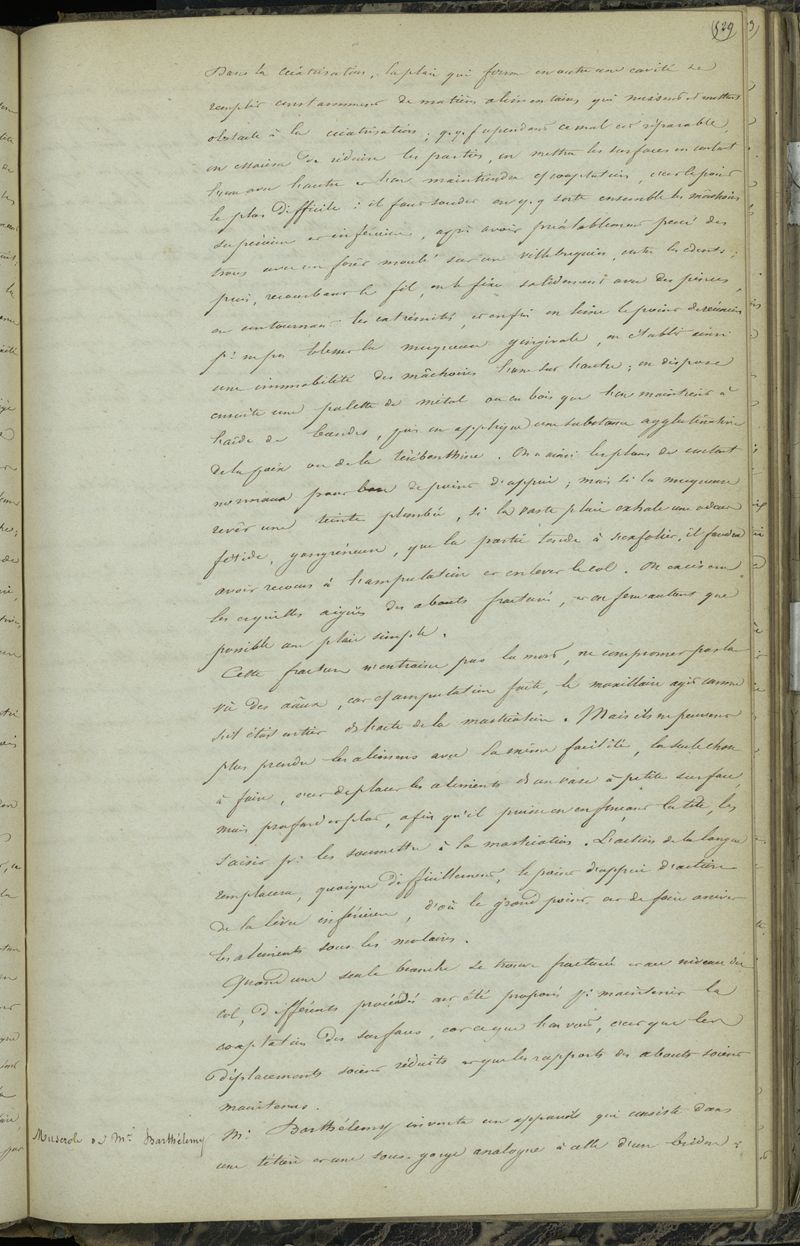 529
Dans la cicatrisation, la plaie qui forme en outre une cavité se
remplir constamment de matières alimentaires qui mettent
obstacle à la cicatrisation ; cependant ce mal est réparable,
on essaiera de réduire les parties, en mettre les surfaces en contact
l'une avec l'autre et l'on maintiendra c'est le point
le plus difficile : il faut souder en q.q. sorte ensemble les mâchoires
supérieure et inférieure, après avoir préalablement percé des
trous avec un foret monté sur un villebrequin, entre les dents ;
puis, recourbant le fil, on le fixe solidement avec des pinces,
en contournant les extrémités, et enfin on lime le point de
pr. ne pas blesser la muqueuse gingivale, on établit ainsi
une immobilité des mâchoires l'une sur l'autre ; on dispose
ensuite une palette de métal ou en bois que l'on maintient à
l'aide de bandes, puis on applique une substance agglutinative
de la poix ou de la térébenthine. On a ainsi les plans de contact
normaux pour de point d'appui ; mais si la muqueuse
revêt une teinte plombée, si la vaste plaie exhale une odeur
fétide, gangréneuse, que la partie tende à s'exfolier, il faudra
avoir recours à l'amputation et enlever le col. On
les esquilles aiguës des abouts fracturés, et on fera autant que
possible une plaie simple.
Cette fracture n'entraîne pas la mort, ne compromet pas la
vie des animaux, car l'amputation faite, le maxillaire agit comme
s'il était entier de la mastication. Mais ils ne peuvent
plus prendre les aliments avec la même facilité, la seule chose
à faire, c'est de placer les aliments ds un vase à petite surface,
mais profond et plat, afin qu'il puisse en enfonçant la tête, les
saisir pr. les soumettre à la mastication. L'action de la langue
remplacera, quoique difficilement, le point d'appui d'action
de la lèvre inférieure, d'où le grand point est de faire arriver
les aliments sous les molaires.
Quand une seule branche se trouve fracturée et au niveau du
col, différents procédés ont été proposés pr. maintenir la
coaptation des surfaces, car ce que l'on veut, c'est que les
déplacements soient réduits et que les rapports des abouts soient
maintenus.
Muserole de Mr. Barthélemy
Mr. Barthélemy invente un appareil qui consiste dans
une têtière et une sous-gorge analogue à celle d'une bride ;